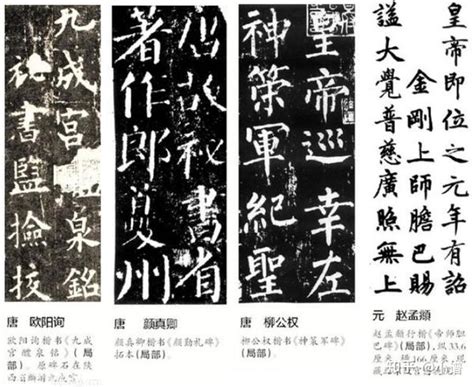 九成宮泉銘
秘書監撿挍
唐故秘書省
著作郎夔州
皇帝巡幸左
神策軍紀聖
皇帝即位之元年有詔
金剛上師膽巴賜
謚大覺普慈廣照無上
唐 欧阳询
欧阳询楷书《九成
宫醴泉铭》(局
部)。原碑石在陕
西省麟游九成宫。
唐 颜真卿
颜真卿楷书《颜勤礼碑》
拓本(局部)。
唐 柳公权
柳公权楷书《神策军碑》
(局部)。
元 赵孟頫
赵孟頫行楷《帝师胆
巴碑》(局部)，纵33.6
厘米，横166厘米，现
知乎